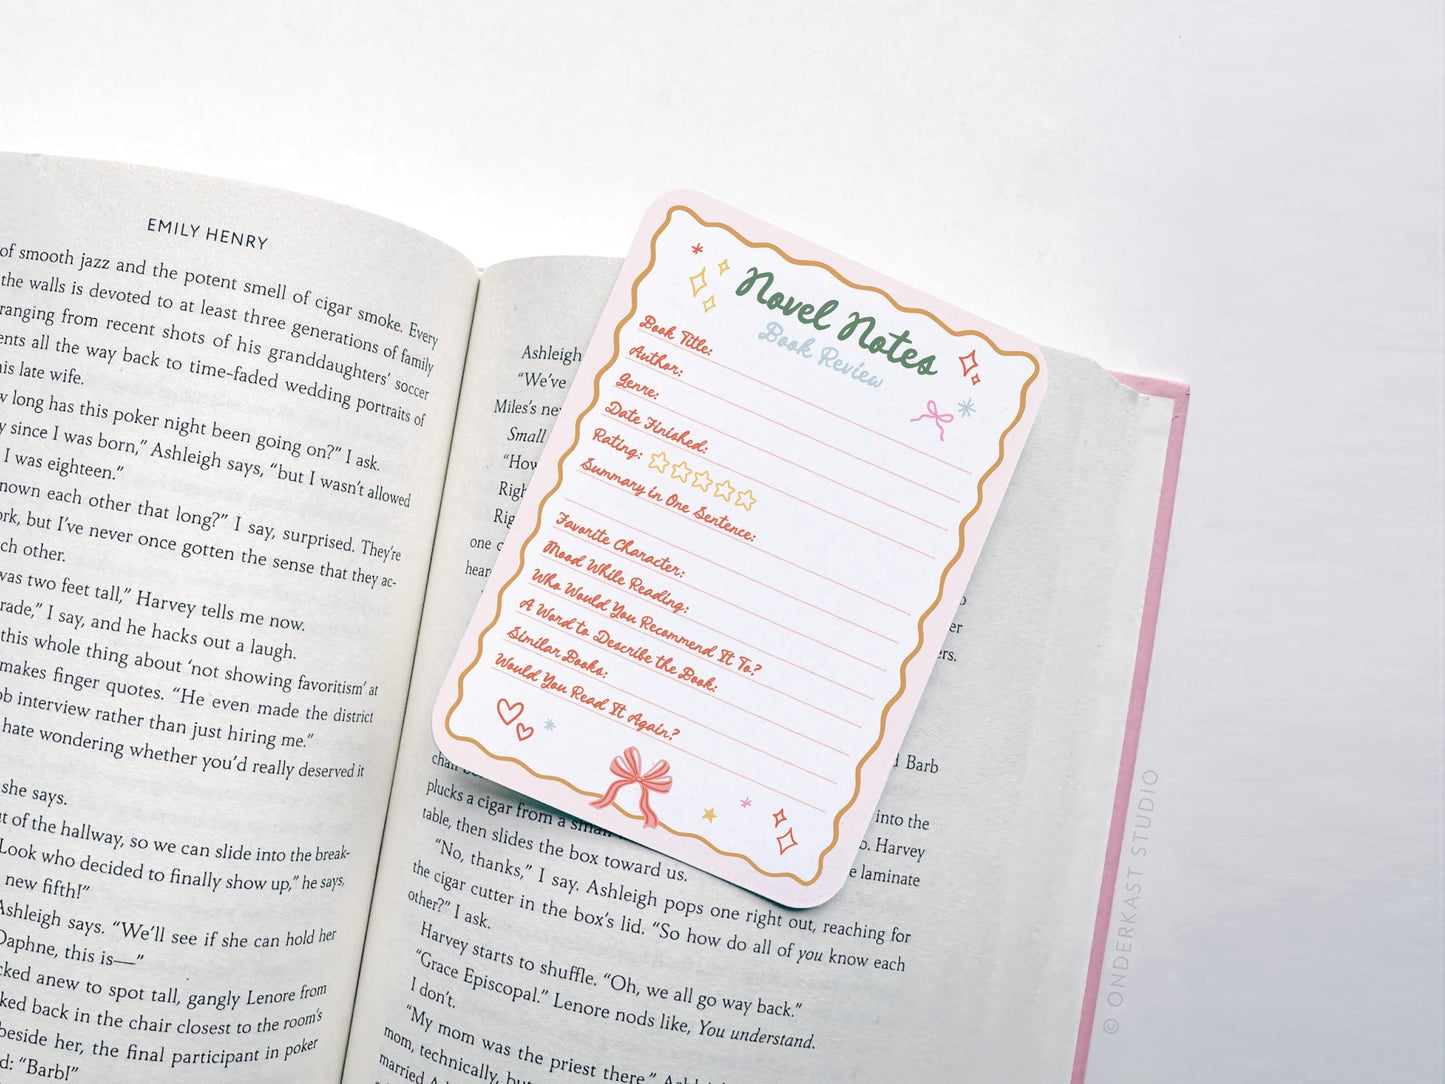 EMILY HENRY
of smooth jazz and the potent smell of cigar smoke. Every
the walls is devoted to at least three generations of family
ranging from recent shots of his granddaughters’ soccer
ents all the way back to time-faded wedding portraits of
his late wife.
long has this poker night been going on?” I ask.
since I was born,” Ashleigh says, “but I wasn’t allowed
I was eighteen.”
nown each other that long?” I say, surprised. They’re
ork, but I’ve never once gotten the sense that they ac-
ch other.
was two feet tall,” Harvey tells me now.
rade,” I say, and he hacks out a laugh.
this whole thing about ‘not showing favoritism’ at
makes finger quotes. “He even made the district
ob interview rather than just hiring me.”
hate wondering whether you’d really deserved it
she says.
ut of the hallway, so we can slide into the break-
Look who decided to finally show up,” he says,
new fifth!”
Ashleigh says. “We’ll see if she can hold her
Daphne, this is—”
cked anew to spot tall, gangly Lenore from
ked back in the chair closest to the room’s
beside her, the final participant in poker
d: “Barb!”
Ashleigh
“We’ve
Miles’s ne
Small
“How
Righ
Rig
one c
hear
Novel Notes
Book Review
Book Title:
Author:
Genre:
Date Finished:
Rating:
Summary in One Sentence:
Favorite Character:
Mood While Reading:
Who Would You Recommend It To?
A Word to Describe the Book:
Similar Books:
Would You Read It Again?
er
ers.
Barb
into the
Harvey
laminate
plucks a cigar from a small
table, then slides the box toward us.
“No, thanks,” I say. Ashleigh pops one right out, reaching for
the cigar cutter in the box’s lid. “So how do all of you know each
other?” I ask.
Harvey starts to shuffle. “Oh, we all go way back.”
“Grace Episcopal.” Lenore nods like, You understand.
I don’t.
“My mom was the priest there,”
mom, technically, but
married
© ONDERKAST STUDIO